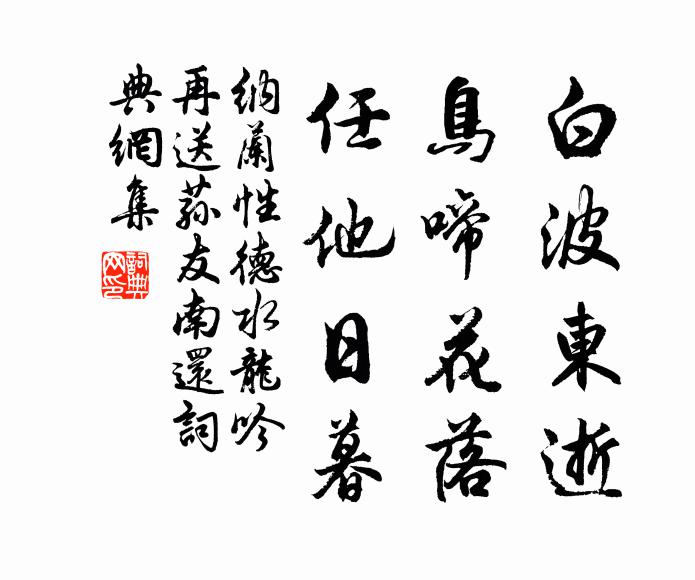 白波東逝
鳥啼花落
任他日暮
納蘭性德水龍吟
再送蓀友南還詞
典網集
詞典
网印